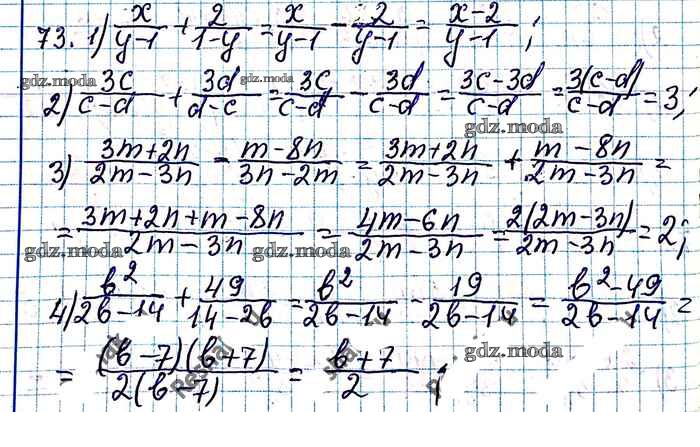 73. 1) x/(y-1) + 2/(1-y) = x/(y-1) - 2/(y-1) = (x-2)/(y-1);
gdz.moda gdz.moda
2) 3c/(c-d) + 3d/(d-c) = 3c/(c-d) - 3d/(c-d) = (3c-3d)/(c-d) = 3(c-d)/(c-d) = 3;
gdz.moda
3) (3m+2n)/(2m-3n) - (m-8n)/(3n-2m) = (3m+2n)/(2m-3n) + (m-8n)/(2m-3n) =
= (3m+2n+m-8n)/(2m-3n) = (4m-6n)/(2m-3n) = 2(2m-3n)/(2m-3n) = 2;
gdz.moda gdz.moda gdz.moda
4) b²/(2b-14) + 49/(14-2b) = b²/(2b-14) - 19/(2b-14) = (b²-49)/(2b-14) =
gdz.moda
= (b-7)(b+7)/2(b-7) = (b+7)/2;